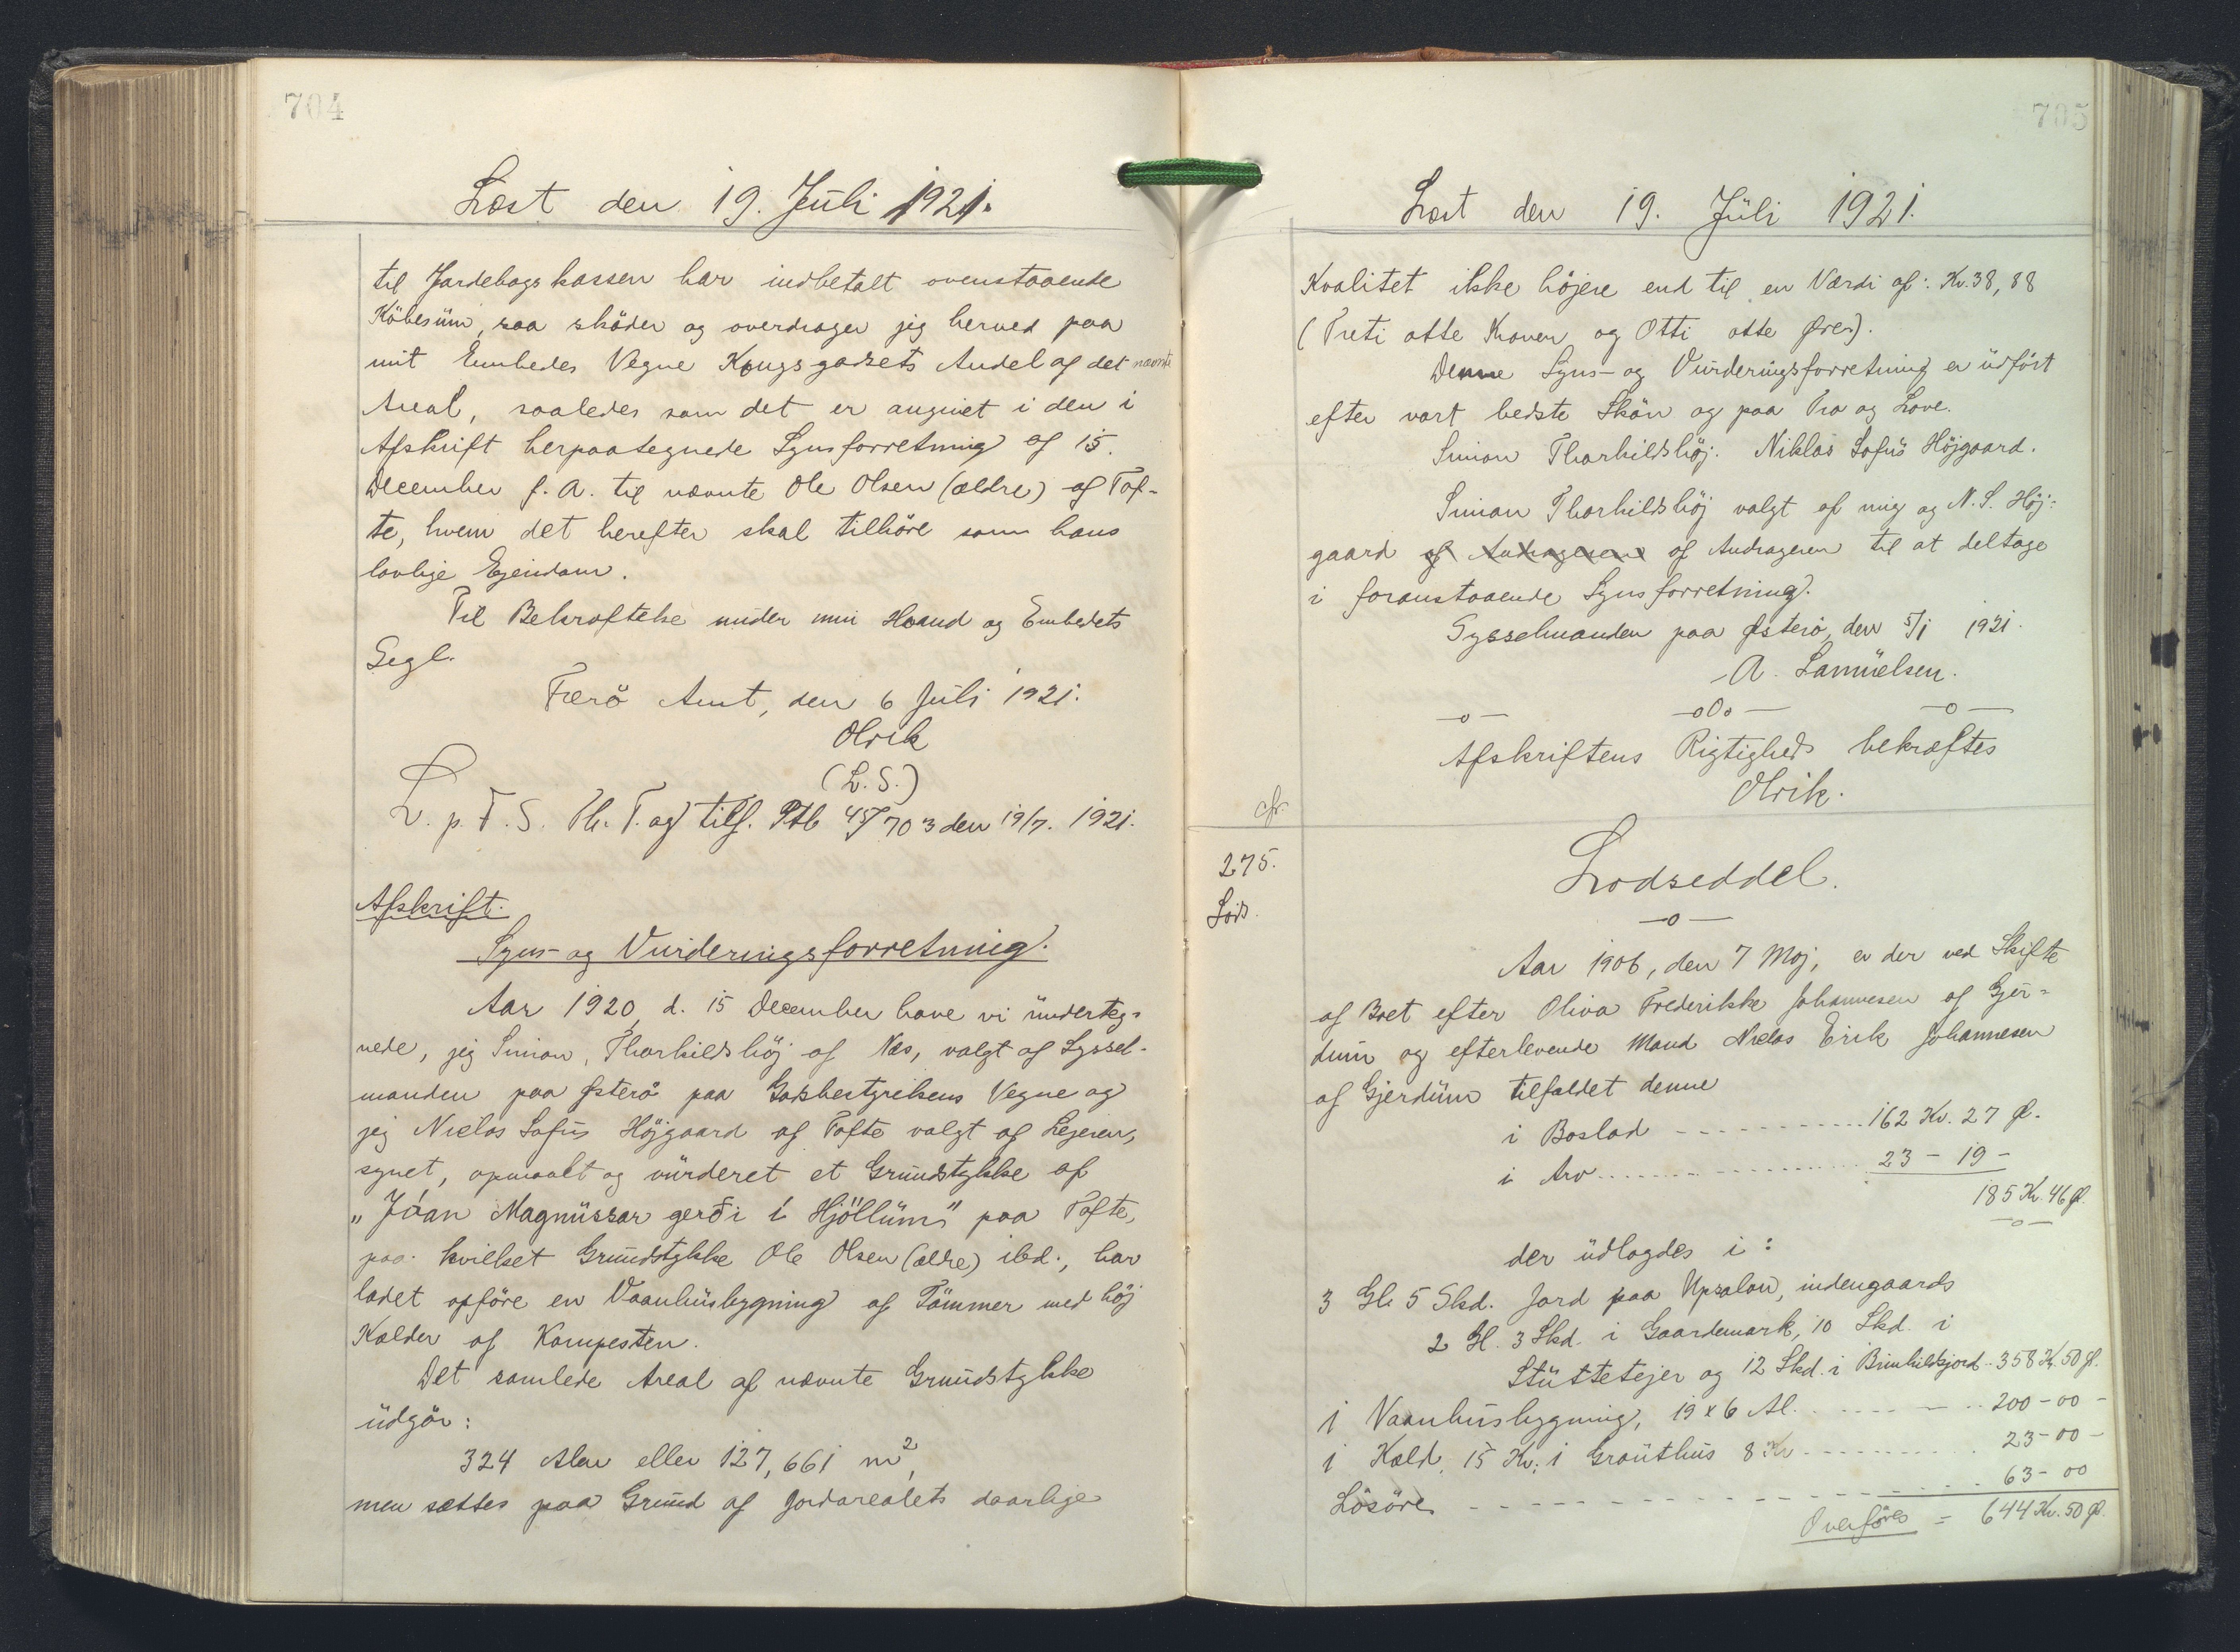 704
Læst den 19. Juli 1921.
til Jordebogskassen har indbetalt ovenstaaende
Köbesüm, saa skøder og overdrager jeg herved paa
mit Embedes Vegne Kongsgodsets Andel af det nævnte
Areal, saaledes som det er angivet i den i
Afskrift herpaategnede Synsforretning af 15.
December f. A. til nævnte Ole Olsen (ældre) af Tof-
te, hvem det herefter skal tilhöre som hans
lovlige Ejendom.
Til Bekræftelse under min Haand og Embedets
Segl.
Færö Amt, den 6 Juli 1921.
Olrik
(L.S.)
L. p. F. S. Th. T. og tilf. Ptb 45/703 den 19/7. 1921.
Afskrift.
Syns- og Vurderingsforretning.
Aar 1920, d. 15 December have vi ünderteg-
nede, jeg Simon Thorkildshöj af Næs, valgt af Syssel-
manden paa Østerö paa Godsbestyrelsens Vegne og
jeg Niclas Sofus Höjgaard af Tofte valgt af Lejeren,
synet, opmaalt og vürderet et Grundstykke af
"Jóan Magnüssar gerði í Hjöllüm" paa Tofte,
paa hvilket Grundstykke Ole Olsen (ældre) ibd., har
ladet opföre en Vaanhüsbygning af Tömmer med höj
Kælder af Kampesten.
Det samlede Areal af nævnte Grundstykke
üdgör:
324 Alen eller 127,661 m²,
men sættes paa Grund af Jordarealets daarlige
705
Læst den 19. Jüli 1921.
Kvalitet ikke höjere end til en Værdi af: Kr. 38,88
(Treti otte Kroner og Otti otte Øre).
Denne Syns- og Vürderingsforretning er üdfört
efter vort bedste Skön og paa Tro og Love.
Simon Thorkildshöj. Niklas Sofüs Höjgaard.
Simon Thorkildshöj valgt af mig og N. S. Höj-
gaard af Andrageren af Andrageren til at deltage
i foranstaaende Synsforretning.
Sysselmanden paa Østerö, den 5/1 1921.
A. Samüelsen.
—o— —oOo— —o—
Afskriftens Rigtighed bekræftes
Olrik.
cfr.
275.
Lods.
Lodseddel.
—o—
Aar 1906, den 7 Maj, er der ved Skifte
af Boet efter Oliva Frederikke Johannesen af Gjer-
dum og efterlevende Mand Niclas Erik Johannesen
af Gjerdüm tilfaldet denne
i Boslod 162 Kr. 27 Ø.
i Arv 23 - 19 -
185 Kr. 46 Ø.
—o—
der üdlagdes i:
3 Gl. 5 Skd. Jord paa Upsalon, indengaards
2 Gl. 3 Skd. i Gaardemark, 10 Skd. i
Stüttetejer og 12 Skd. i Brunhildsjord 358 Kr. 50 Ø.
1 Vaanhüsbygning, 19 x 6 Al. 200 - 00 -
1 Hald. 15 Kr; 1 Graüthus 8 Kr 23 - 00 -
Lösöre 63 - 00
Overföres = 644 Kr. 50 Ø.